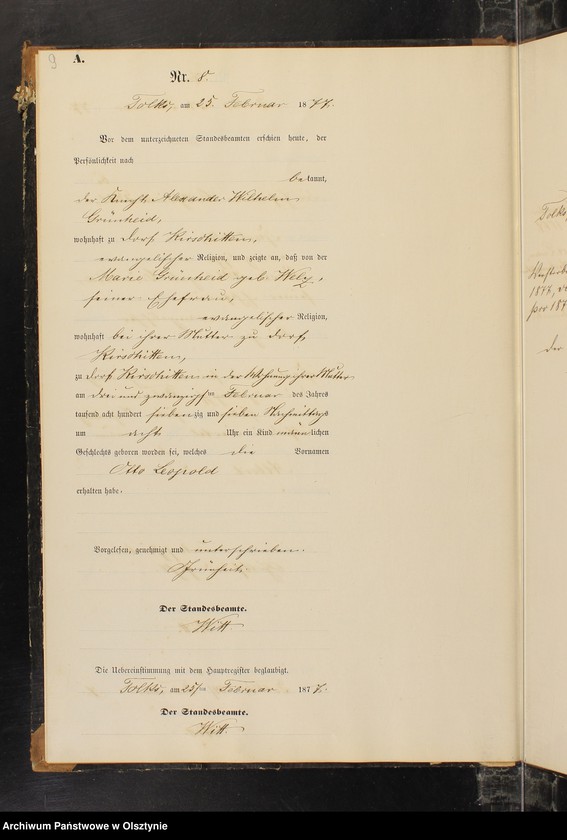 9
A.
Nr. 8.
Tolks, am 25. Februar 1877.
Vor dem unterzeichneten Standesbeamten erschien heute, der
Persönlichkeit nach
bekannt,
der Knecht Alexander Wilhelm
Grünheid,
wohnhaft zu Dorf Kirschitten,
evangelischer Religion, und zeigte an, daß von der
Marie Grünheid geb.
seiner Ehefrau,
evangelischer Religion,
wohnhaft bei ihrer Mutter zu Dorf
Kirschitten,
zu Dorf Kirschitten in der Wohnung ihrer Mutter
am drei und zwanzigsten Februar des Jahres
tausend acht hundert siebenzig und sieben Nachmittags
um acht Uhr ein Kind männlichen
Geschlechts geboren worden sei, welches die Vornamen
Otto Leopold
erhalten habe.
Vorgelesen, genehmigt und unterschrieben.
Grünheit.
Der Standesbeamte.
Witt
Die Uebereinstimmung mit dem Hauptregister beglaubigt.
Tolks, am 25ten Februar 1877.
Der Standesbeamte.
Witt.
Tolks
1877,
Der
Archiwum Państwowe w Olsztynie